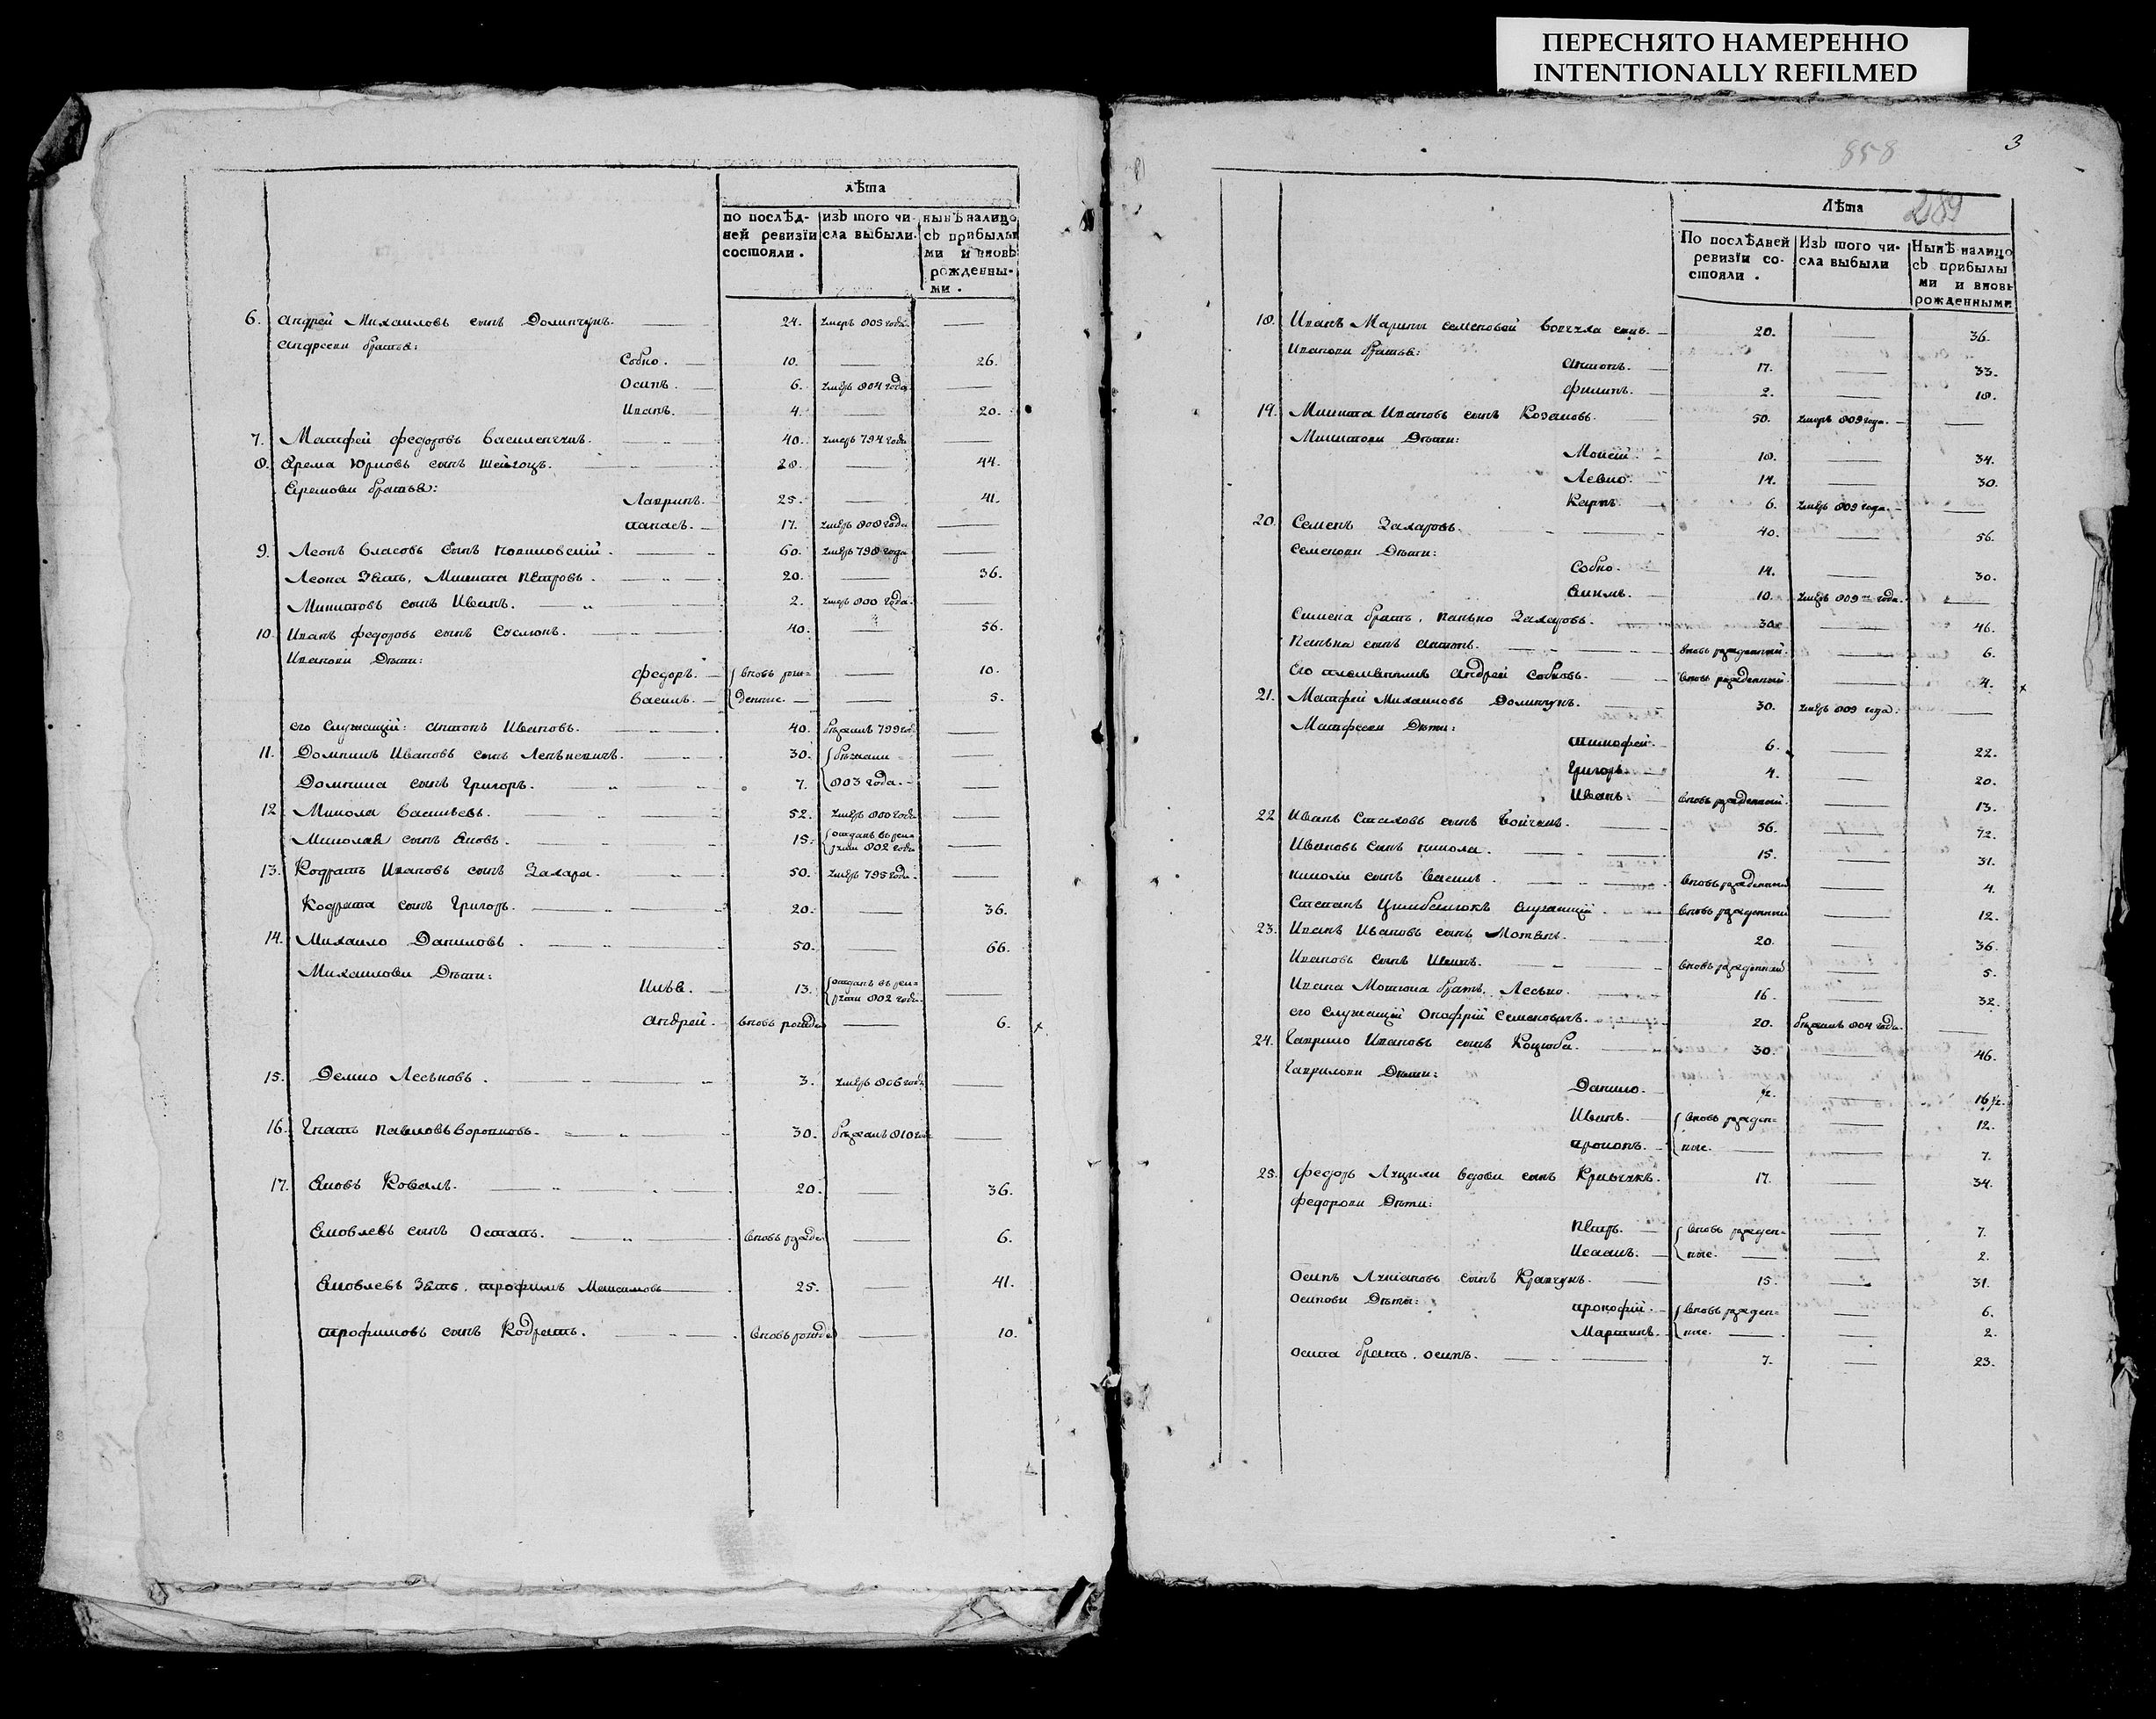 ПЕРЕСНЯТО НАМЕРЕННО
INTENTIONALLY REFILMED
лѣта
по послѣд- изЪ того чи- нынѣ налицо
ней ревизїи сла выбыли. сЪ прибылы
состояли. ми и вновь
рожденны-
ми.
6. Андрей Михаиловъ сынъ Долинчукъ. 24. умеръ 805 года. —
Андрееви братья:
Собко. 10. — 26.
Осипъ. 6. умеръ 804 года —
Иванъ. 4. — 20.
7. Матфей Федоровъ Василенчукъ. 40. умеръ 794 года —
8. Ярема Юрковъ сынъ 28. — 44.
Яремови братья:
Лавринъ. 25. — 41.
Панасъ. 17. умеръ 808 года —
9. Леонъ Власовъ сынъ 60. умеръ 798 года —
Леона Зять, Микита Петровъ. 20. — 36.
Микитовъ сынъ Иванъ. 2. умеръ 800 года. —
10. Иванъ Федоровъ сынъ 40. — 56.
Иванови Дѣти:
Федоръ. вновь рож= — 10.
Василь. денные. — 5.
его служащій: Антонъ Ивановъ. 40. бѣжалъ 799 год. —
11. Домникъ Ивановъ сынъ 30. бѣжали —
Домника сынъ Григоръ. 7. 803 года. —
12. Микола Васильевъ. 52. умеръ 800 года —
Миколая сынъ Яковъ. 15. отданъ въ рек=
рути 802 года —
13. Кодратъ Ивановъ сынъ Захара. 50. умеръ 795 года. —
Кодрата сынъ Григоръ. 20. — 36.
14. Михайло Даниловъ. 50. — 66.
Михаилови Дѣти:
Илья. 13. отданъ въ рек=
рути 802 года —
Андрей. вновь рожде — 6.
15. Демко Леськовъ. 3. умеръ 806 года —
16. Гнатъ Павловъ 30. бѣжалъ 810 года —
17. Яковъ Коваль. 20. — 36.
Яковлевъ сынъ Остапъ. вновь рожде — 6.
Яковлевъ Зять, Трофимъ Максимовъ 25. — 41.
Трофимовъ сынъ Кодратъ. вновь рожде — 10.
858
3
289
Лѣта
По послѣдней ИзЪ того чи- Нынѣ налицо
ревизїи со- сла выбыли сЪ прибылы
стояли. ми и вновь
рожденными
18. Иванъ Марины Семеновой сынъ. 20. — 36.
Иванови братья:
Антонъ. 17. — 33.
Филипъ. 2. — 18.
19. Микита Ивановъ сынъ Козаковъ. 50. умеръ 809 года. —
Микитови Дѣти:
Мойсій. 18. — 34.
Левко. 14. — 30.
Карпъ. 6. умеръ 809 года. —
20. Семенъ Захаровъ. 40. — 56.
Семенови Дѣти:
Собко. 14. — 30.
Якимъ. 10. умеръ 809 года. —
Симена братъ, Панько Захаровъ. 30. — 46.
Панька сынъ вновь рожденный. — 6.
Его племянникъ Андрей Собковъ. вновь рожденный. — 4.
21. Матфей Михаиловъ Долинчукъ. 30. умеръ 809 года. —
Матфееви Дѣти:
Тимофей. 6. — 22.
Григоръ. 4. — 20.
Иванъ. вновь рожденный. — 13.
22 Иванъ Стасковъ сынъ Бойчукъ. 56. — 72.
Ивановъ сынъ Микола. 15. — 31.
Миколи сынъ Василь. вновь рожденный — 4.
Степанъ служащій вновь рожденный — 12.
23. Иванъ Ивановъ сынъ 20. — 36.
Ивановъ сынъ Иванъ. вновь рожденный — 5.
Ивана братъ, Лесько. 16. — 32.
его служащій Онофрій Семеновичъ. 20. бѣжалъ 804 года. —
24. Гаврило Ивановъ сынъ Коцюба. 30. — 46.
Гаврилови Дѣти:
Данило. ½. — 16½.
Иванъ. вновь рожден= — 12.
Прокопъ. ные. — 7.
25. Федоръ вдови сынъ 17. — 34.
Федорови Дѣти:
Петръ. вновь рожден= — 7.
Исаакъ. ные. — 2.
Осипъ сынъ Кравчукъ. 15. — 31.
Осипови Дѣти:
Прокофій. вновь рожден= — 6.
Мартинъ. ные. — 2.
Осипа братъ, Осипъ. 7. — 23.